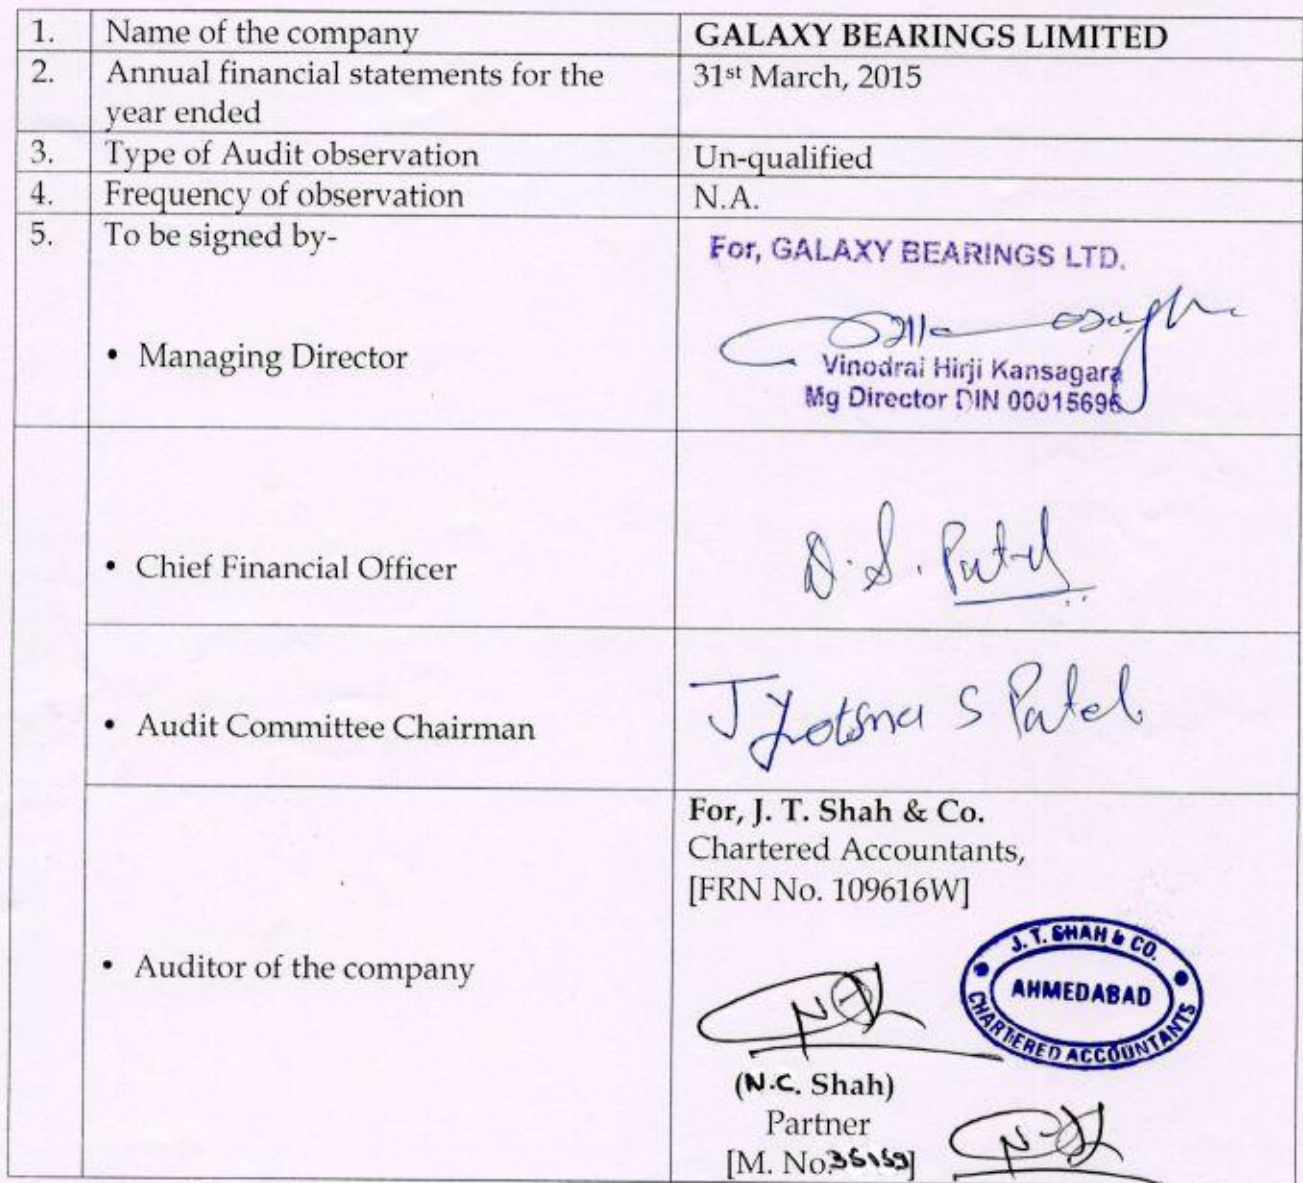 1. Name of the company GALAXY BEARINGS LIMITED
2. Annual financial statements for the year ended 31st March, 2015
3. Type of Audit observation Un-qualified
4. Frequency of observation N.A.
5. To be signed by-
For, GALAXY BEARINGS LTD.
• Managing Director
Vinodrai Hirji Kansagara
Mg Director DIN 00015696
• Chief Financial Officer
D. S. Patel
• Audit Committee Chairman
Jyotsna S Patel
For, J. T. Shah & Co.
Chartered Accountants,
[FRN No. 109616W]
• Auditor of the company
J. T. SHAH & CO.
AHMEDABAD
CHARTERED ACCOUNTANTS
(N.C. Shah)
Partner
[M. No.35159]